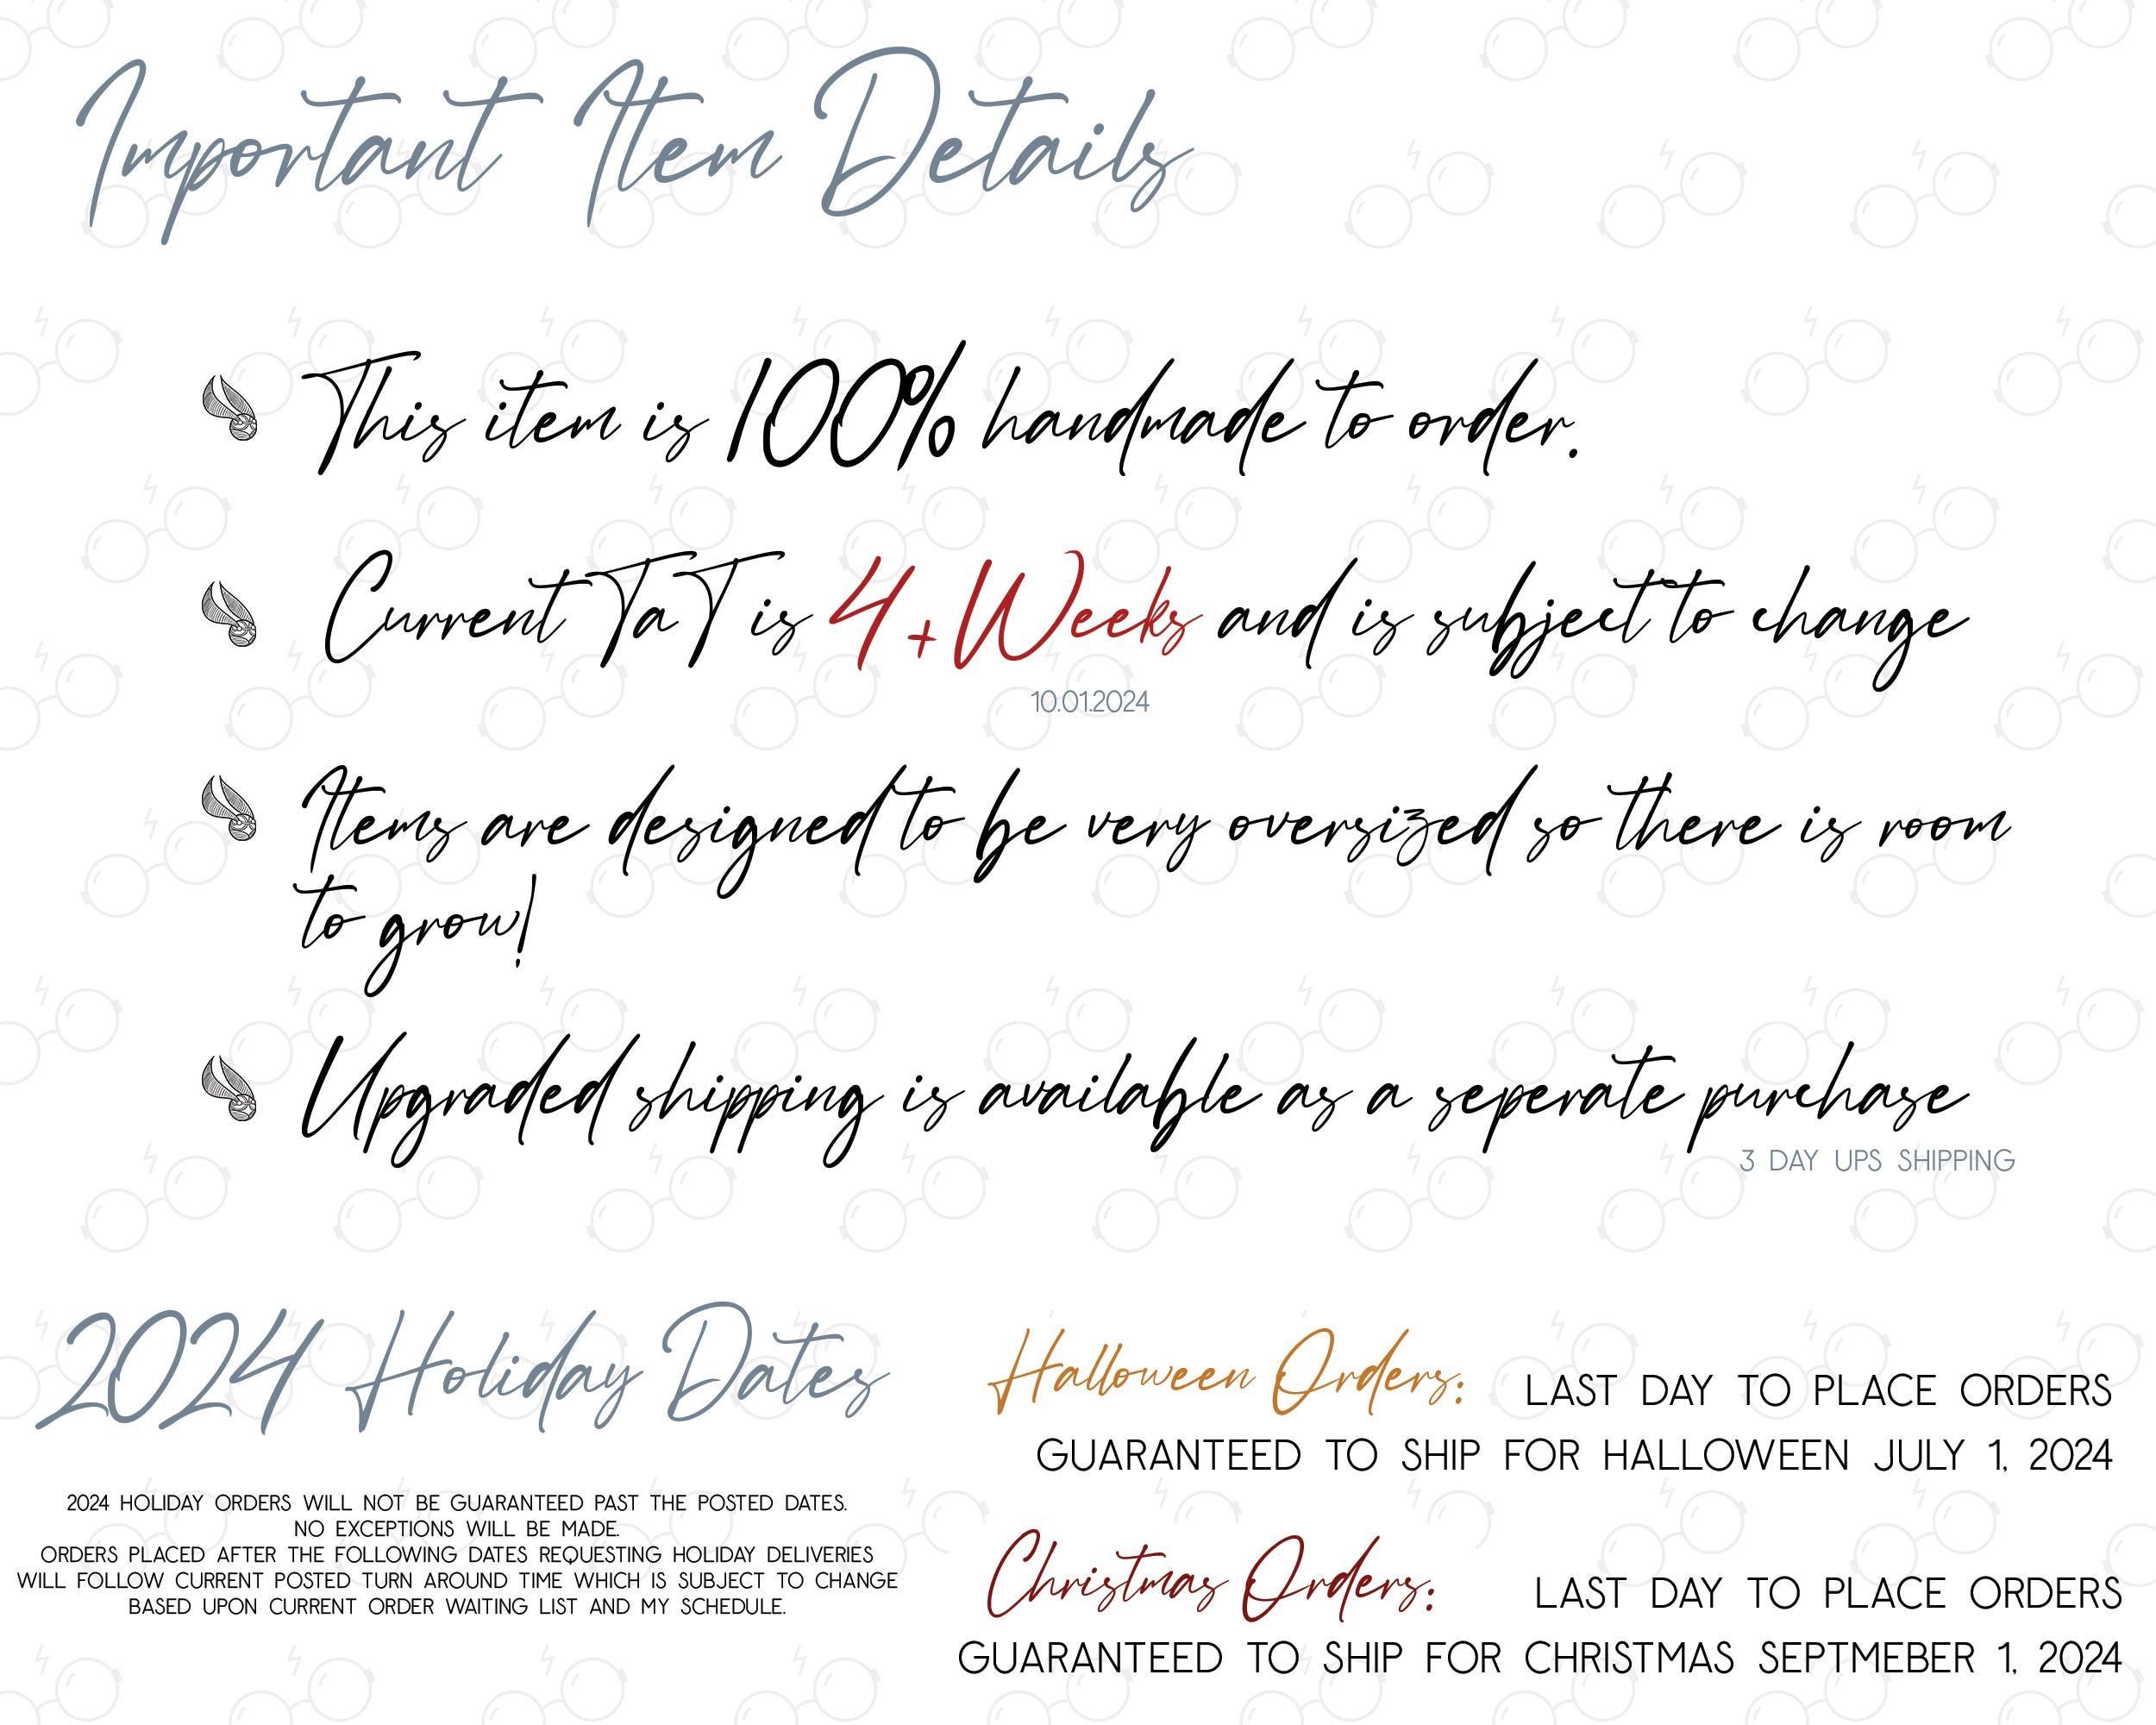 Important Item Details
This item is 100% handmade to order.
Current TaT is 4+ Weeks and is subject to change
10.01.2024
Items are designed to be very oversized so there is room
to grow!
Upgraded shipping is available as a seperate purchase
3 DAY UPS SHIPPING
2024 Holiday Dates
2024 HOLIDAY ORDERS WILL NOT BE GUARANTEED PAST THE POSTED DATES.
NO EXCEPTIONS WILL BE MADE.
ORDERS PLACED AFTER THE FOLLOWING DATES REQUESTING HOLIDAY DELIVERIES
WILL FOLLOW CURRENT POSTED TURN AROUND TIME WHICH IS SUBJECT TO CHANGE
BASED UPON CURRENT ORDER WAITING LIST AND MY SCHEDULE.
Halloween Orders: LAST DAY TO PLACE ORDERS
GUARANTEED TO SHIP FOR HALLOWEEN JULY 1, 2024
Christmas Orders: LAST DAY TO PLACE ORDERS
GUARANTEED TO SHIP FOR CHRISTMAS SEPTMEBER 1, 2024